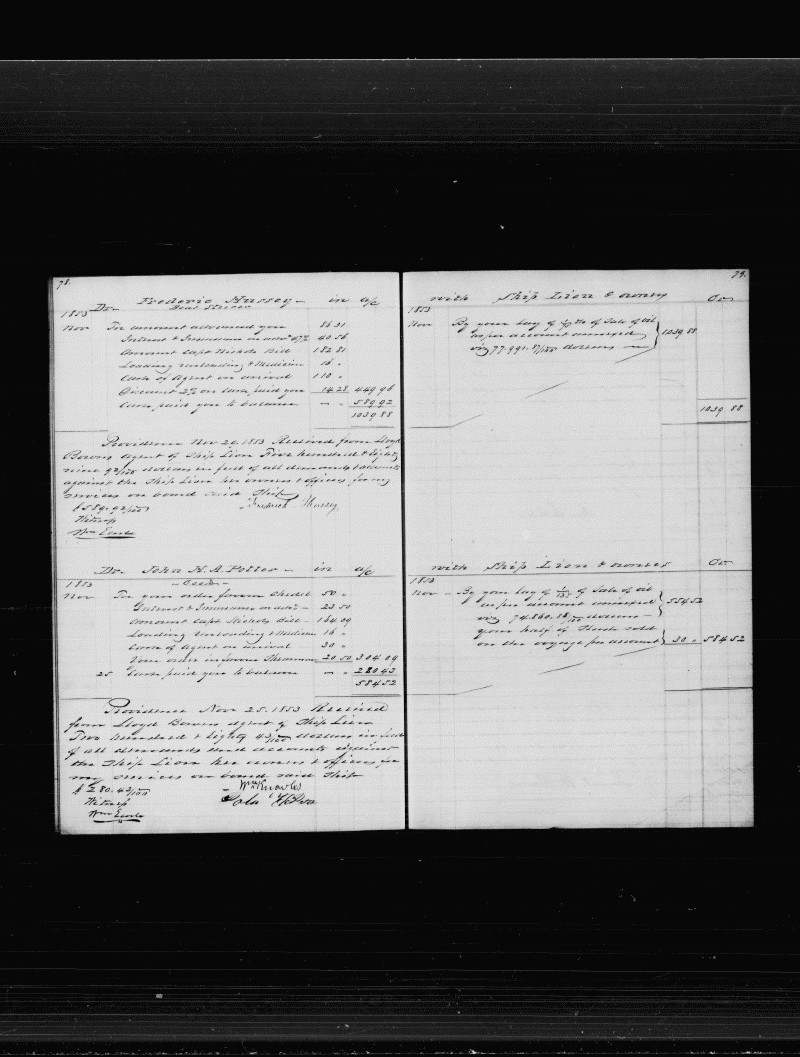 78.
Dr. Frederic Hussey - in a/c
Boat Steerer
1853
Nov To amount advanced you 86 31
Interest & Insurance on advce 47% 40 56
Amount Capt Nichols Bill 182 81
Loading unloading & Medicine 16 "
Cash of Agent on arrival 110 "
Discount 2% on cash paid you 14 28 449 96
Cash paid you to balance " " 589 92
1039 88
Providence Nov 29 1853 Received from Lloyd
Bowers Agent of Ship Lion Five hundred & Eighty
nine 92/100 dollars in full of all demands & accounts
against the Ship Lion her owners & officers for my
services on board said Ship
$589. 92/100 Fredrick Hussey
Witness
Wm Earle
Dr. John H. A. Potter - in a/c
- Cook -
1853
Nov To your order favour 50 "
Interest & Insurance on advce - 23 50
Amount Capt Nichols Bill - 164 09
Loading Unloading & Medicine 16 "
Cash of Agent on arrival 30 "
Your order in favour 20 50 304 09
25 Cash paid you to balance " " 280 43
584 52
Providence Nov 25. 1853 Received
from Lloyd Bowers Agent of Ship Lion
Two hundred & Eighty 43/100 dollars in full
of all demands and accounts against
the Ship Lion her owners & officers for
my services on board said Ship
$280. 43/100
Witness
Wm Earle
79.
with Ship Lion & owners Cr
1853
Nov By your lay of of Sale of oil
as per account annexed 1039 88
viz 77.991. 81/100 dollars
1039 88
with Ship Lion & owners Cr
1853
Nov - By your lay of 1/135 of Sale of oil
as per account annexed 554 52
viz 74.860. dollars -
your half of Slush sold
on the voyage per account 30 " 584 52